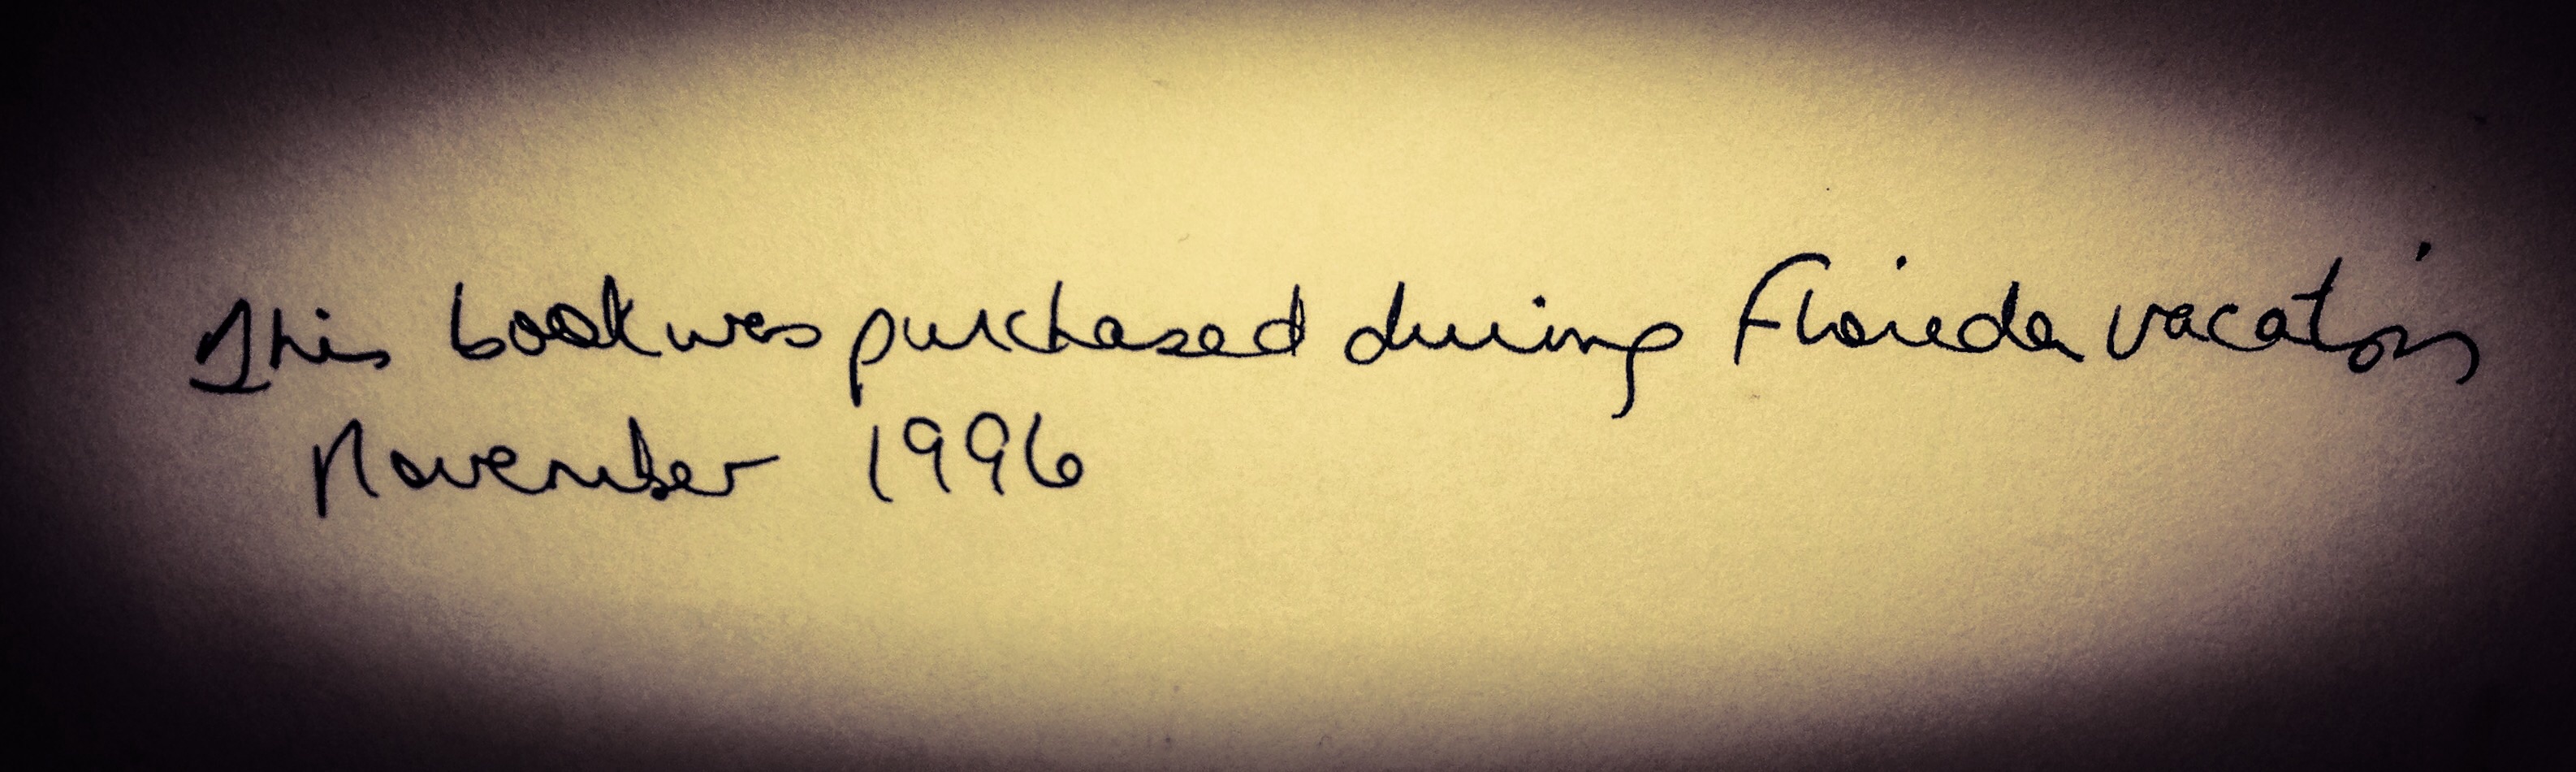 This book was purchased during Florida vacation
November 1996